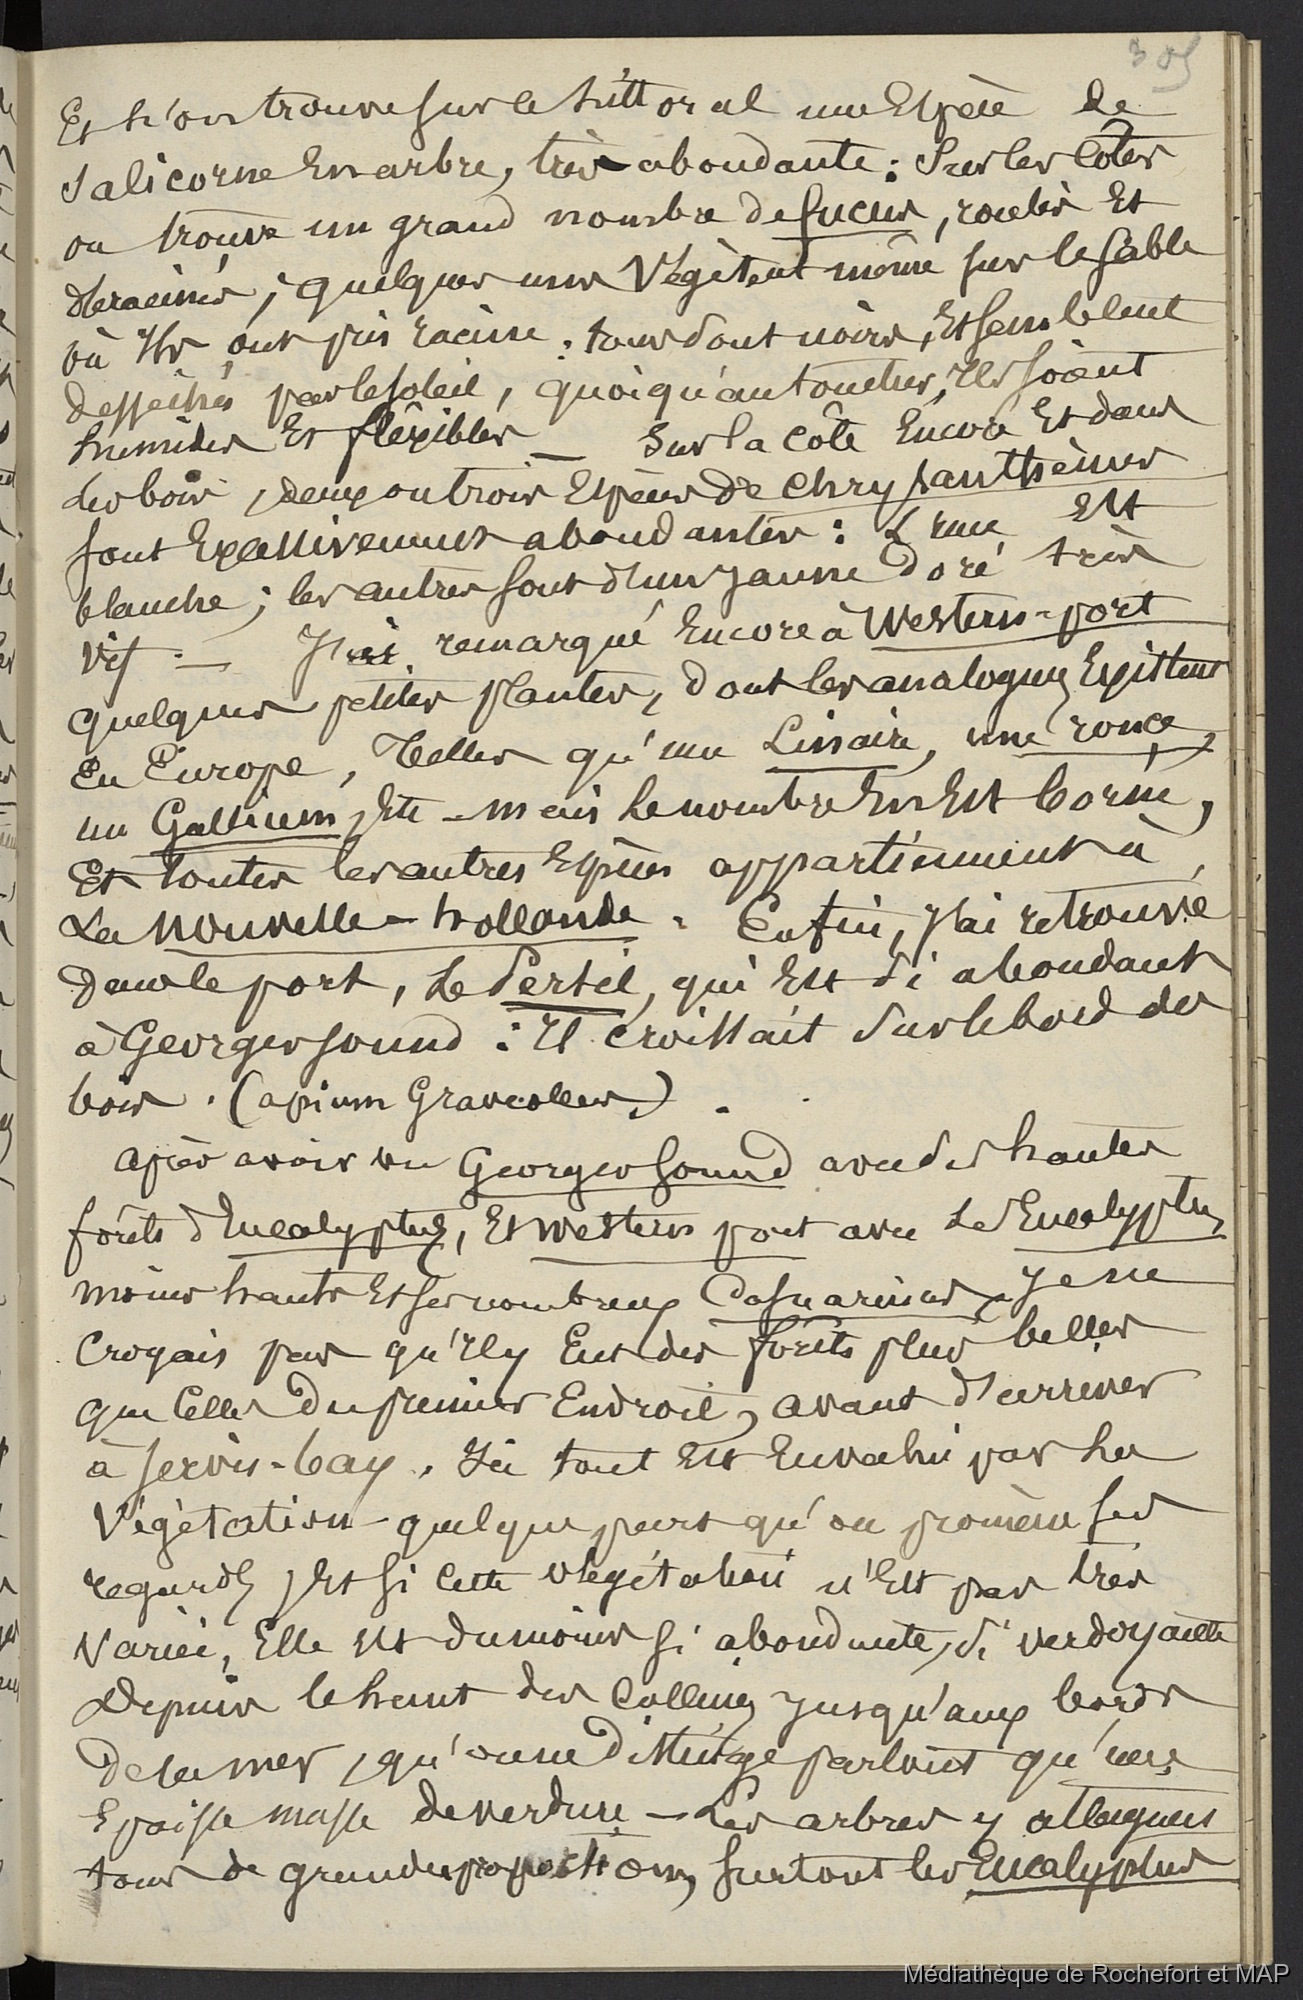 305
Et l'on trouve sur le littoral une Espèce de
salicorne En arbre, très abondante : Sur les Côtes
on trouve un grand nombre de fucus, roulés Et
déracinés ; quelques uns Végètent même sur le sable
où Ils ont pris racine : tous sont noirs, Et semblent
desséchés par le soleil, quoiqu'au toucher, Ils soient
humides Et fléxibles — Sur la côte Encore Et dans
les bois, deux ou trois Espèces de chrysanthèmes
sont Excessivement abondantes : L'une Est
blanche ; les autres sont d'un jaune doré très
vif — J'ai remarqué Encore à Western-port
quelques petites plantes, dont les analogues Existent
En Europe, telles qu'une Linaire, une ronce,
un Gallium, Etc — mais le nombre En Est borné,
Et toutes les autres Espèces appartiennent à
La Nouvelle-hollande. Enfin, J'ai retrouvé
dans le port, Le Persil, qui Est si abondant
à Georges sound : Il croissait sur le bord des
bois. (apium Graveolens).
après avoir vu Georges sound avec des hautes
forêts d'Eucalyptus, Et Western port avec Les Eucalyptus
moins hauts Et ses nombreux Casuarinas, Je ne
croyais pas qu'Il y Eut des forêts plus belles
que Celles du premier Endroit, avant d'arriver
à Jervis-bay. Ici tout Est Envahi par la
Végétation quelque part qu'on promène ses
regards, Et si Cette végétation n'Est pas très
variée, Elle Est du moins si abondante, si verdoyante
Depuis le haut des Collines Jusqu'aux bords
de la mer, qu'on ne distingue partout qu'une
Epaisse masse de verdure — Les arbres y atteignent
tous de grandes proportions, surtout les Eucalyptus
Médiathèque de Rochefort et MAP